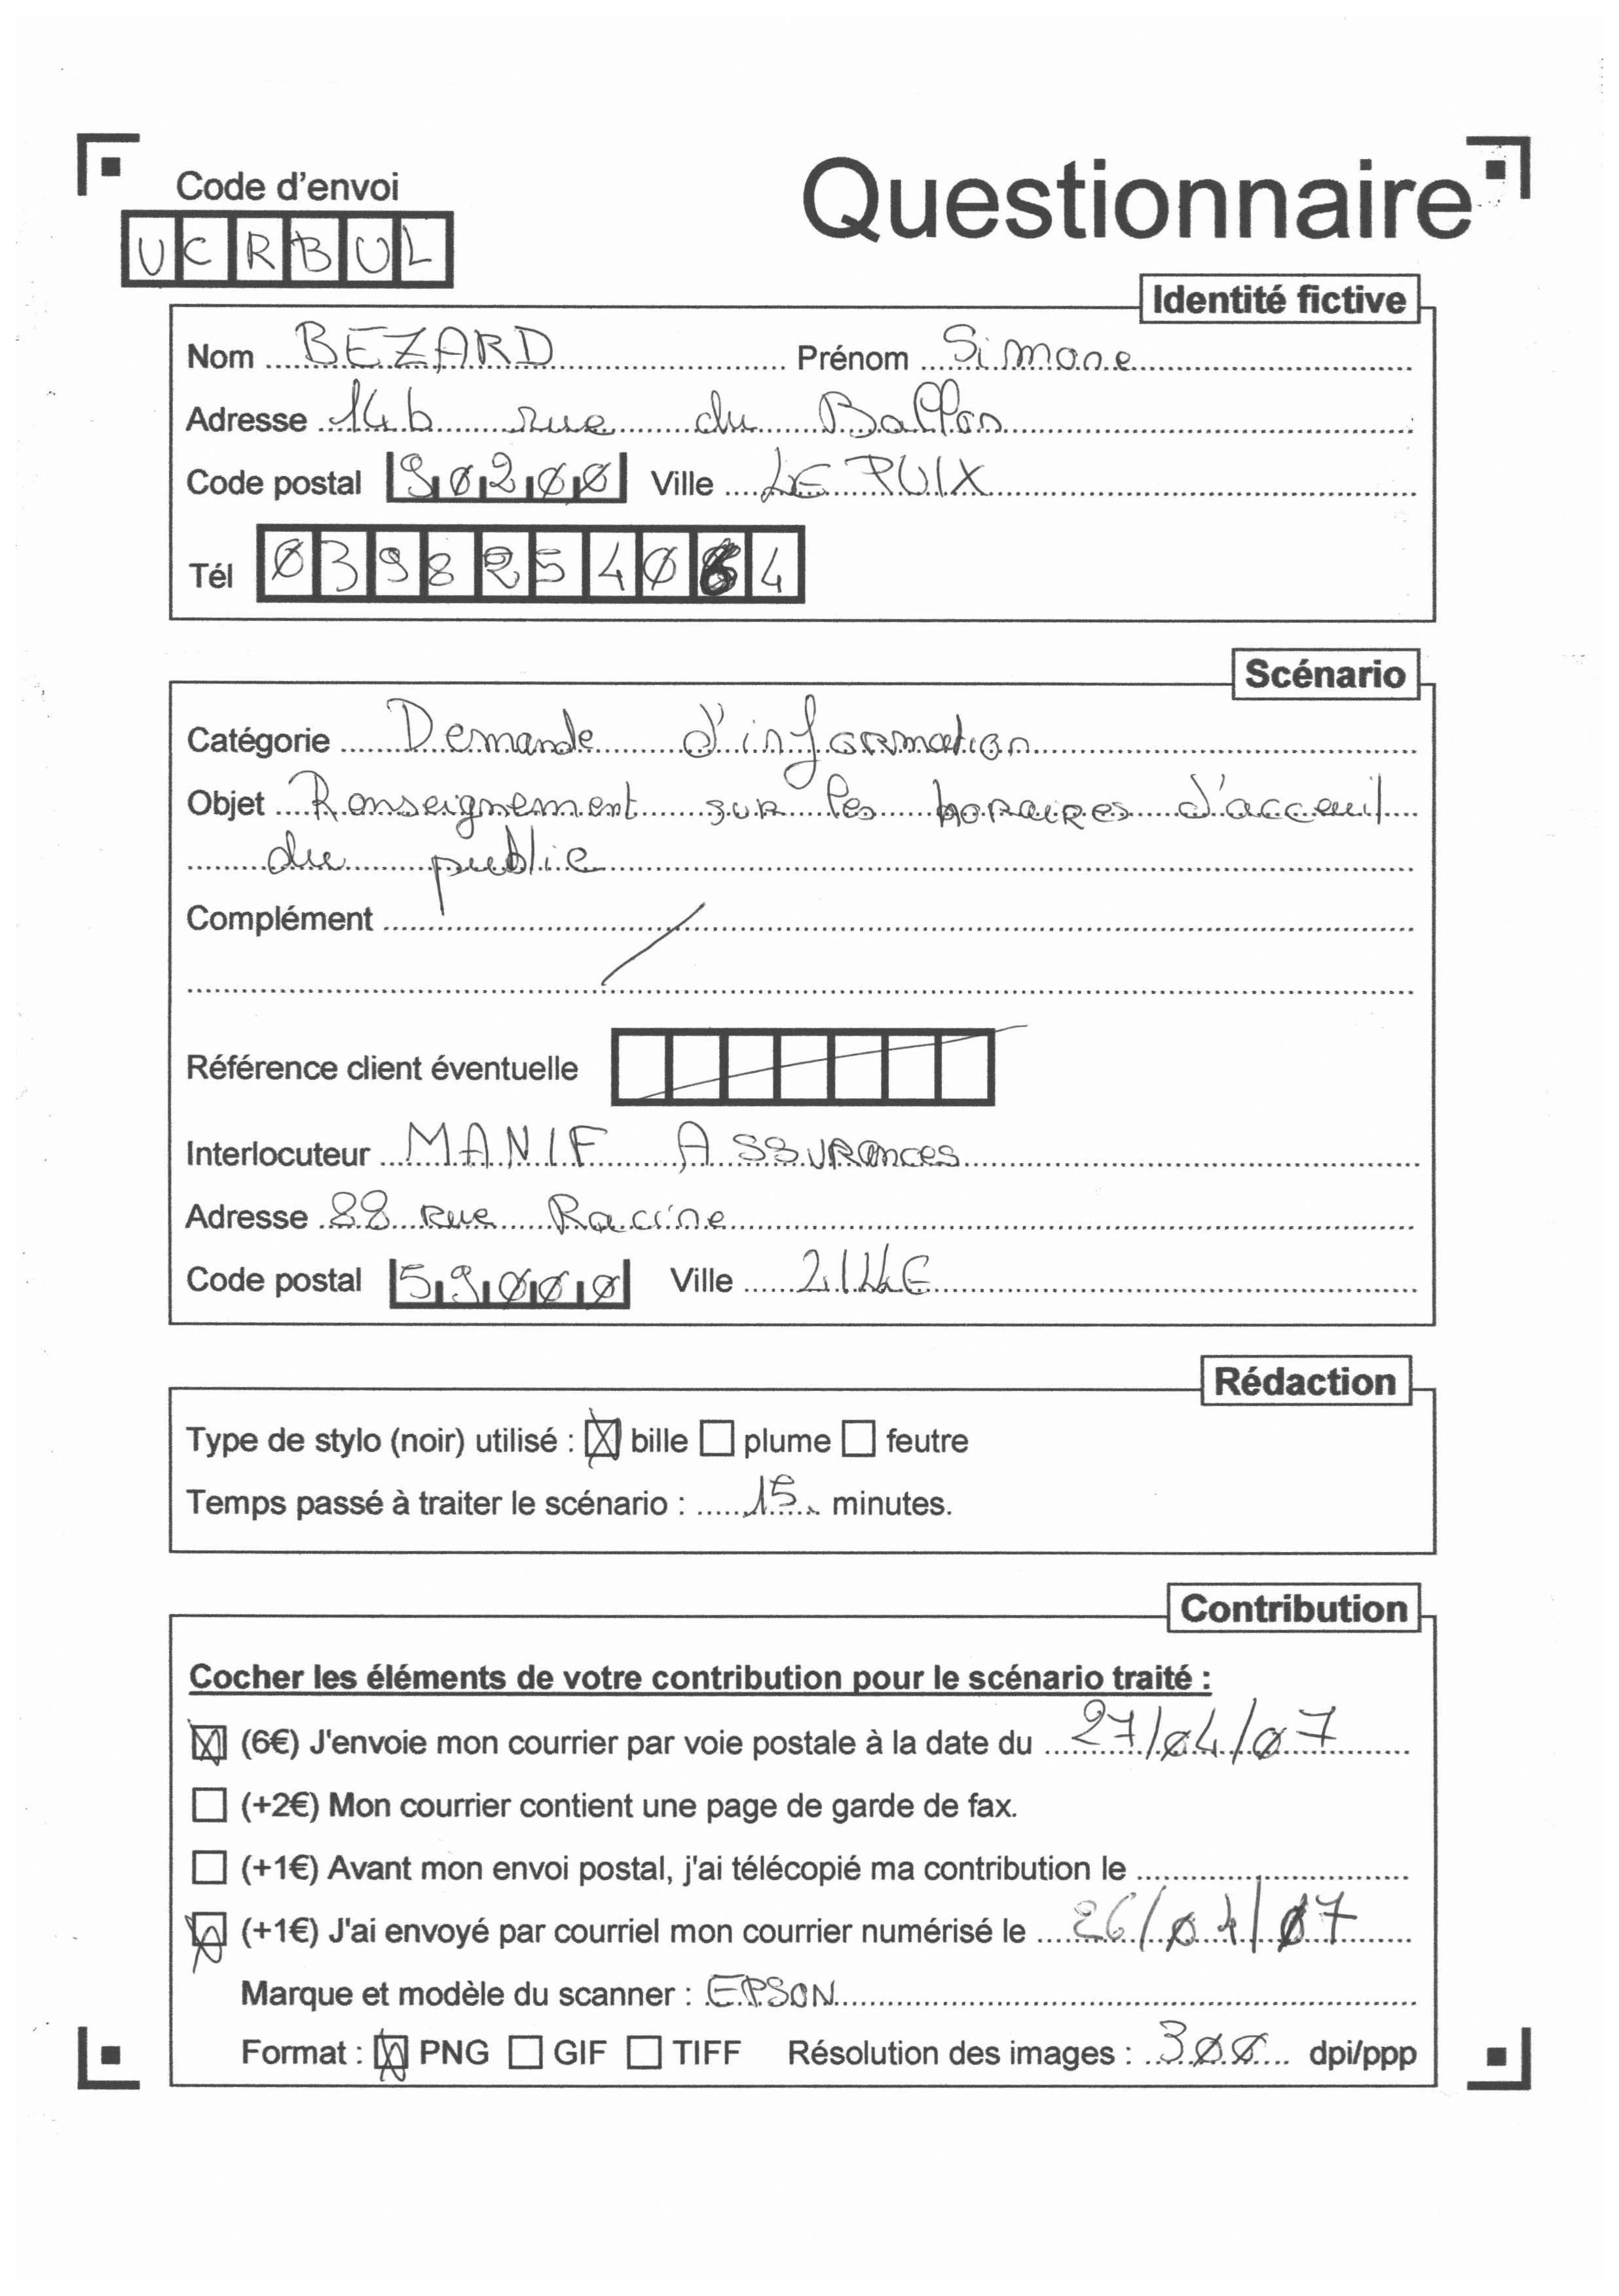 Questionnaire
Code d'envoi
UCRBUL
Identité fictive
Nom BEZARD Prénom Simone
Adresse 14b rue du Ballon
Code postal 90200 Ville LE PUIX
Tél 03982540 4
Scénario
Catégorie Demande d'information
Objet Renseignement sur les horaires d'acceuil
du public
Complément /
Référence client éventuelle
Interlocuteur MANIF Assurances
Adresse 88 rue Racine
Code postal 59000 Ville LILLE
Rédaction
Type de stylo (noir) utilisé : ☒ bille ☐ plume ☐ feutre
Temps passé à traiter le scénario : 15 minutes.
Contribution
Cocher les éléments de votre contribution pour le scénario traité :
☒ (6€) J'envoie mon courrier par voie postale à la date du 27/04/07
☐ (+2€) Mon courrier contient une page de garde de fax.
☐ (+1€) Avant mon envoi postal, j'ai télécopié ma contribution le
☒ (+1€) J'ai envoyé par courriel mon courrier numérisé le 26/04/07
Marque et modèle du scanner : EPSON
Format : ☒ PNG ☐ GIF ☐ TIFF Résolution des images : 300 dpi/ppp